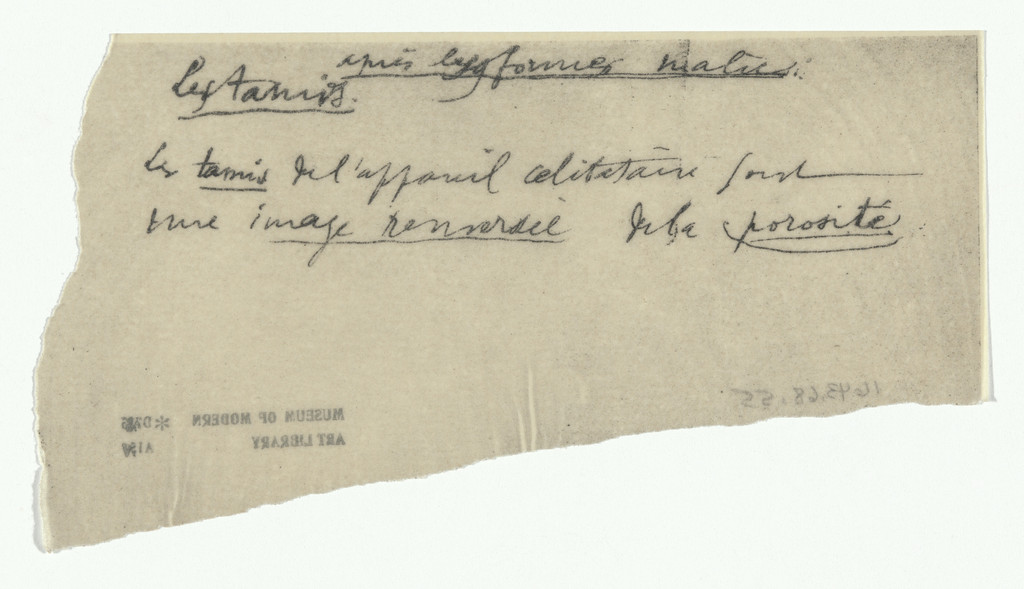 après les 9 formes malic.
Les tamis.
Les tamis de l'appareil célibataire sont
une image renversée de la porosité
1643.68.55
MUSEUM OF MODERN
ART LIBRARY